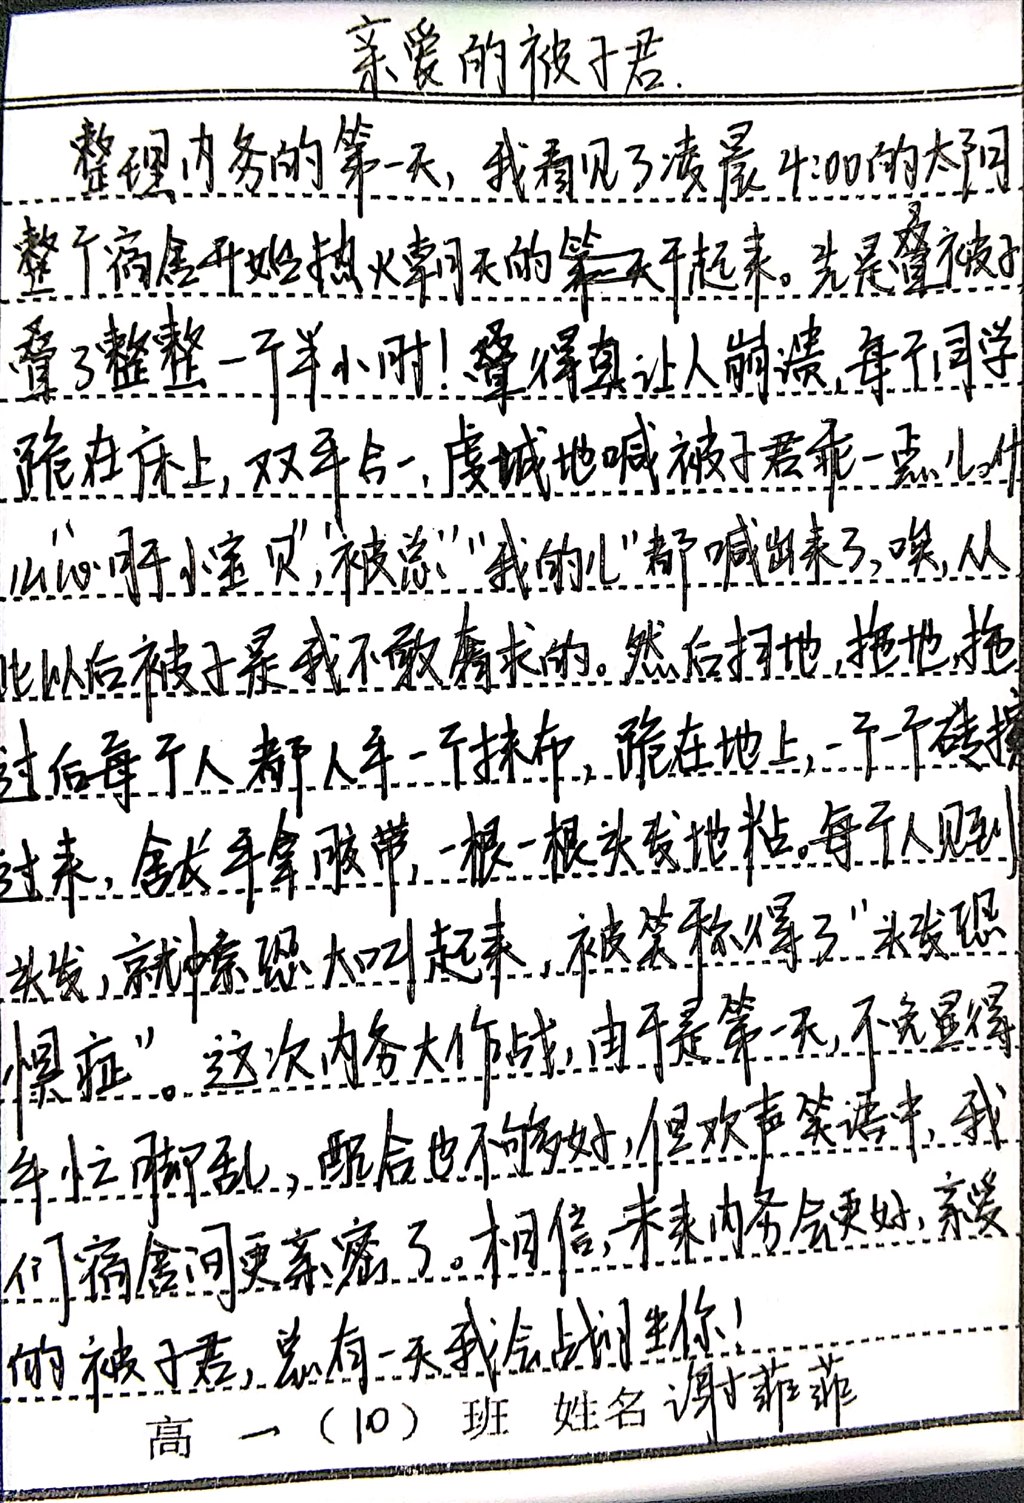 亲爱的被子君.
整理内务的第一天，我看见了凌晨4:00的太阳
整个宿舍开始热火朝天的干起来。先是叠被子
叠了整整一个半小时！叠得真让人崩溃，每个同学
跪在床上，双手合一，虔城地喊被子君乖一点儿。什
么“心肝小宝贝”，“被总”“我的儿”都喊出来了，唉，从
此以后被子是我不敢奢求的。然后扫地，拖地，拖
过后每个人都人手一个抹布，跪在地上，一个一个砖擦
过来，舍友手拿胶带，一根一根头发地粘。每个人见到
头发，就惊恐大叫起来，被笑称得了“头发恐
惧症”。这次内务大作战，由于是第一天，不免显得
手忙脚乱，配合也不够好，但欢声笑语中，我
们宿舍间更亲密了。相信，未来内务会更好，亲爱
的被子君，总有一天我会战胜你！
高一（10）班 姓名 谢菲菲